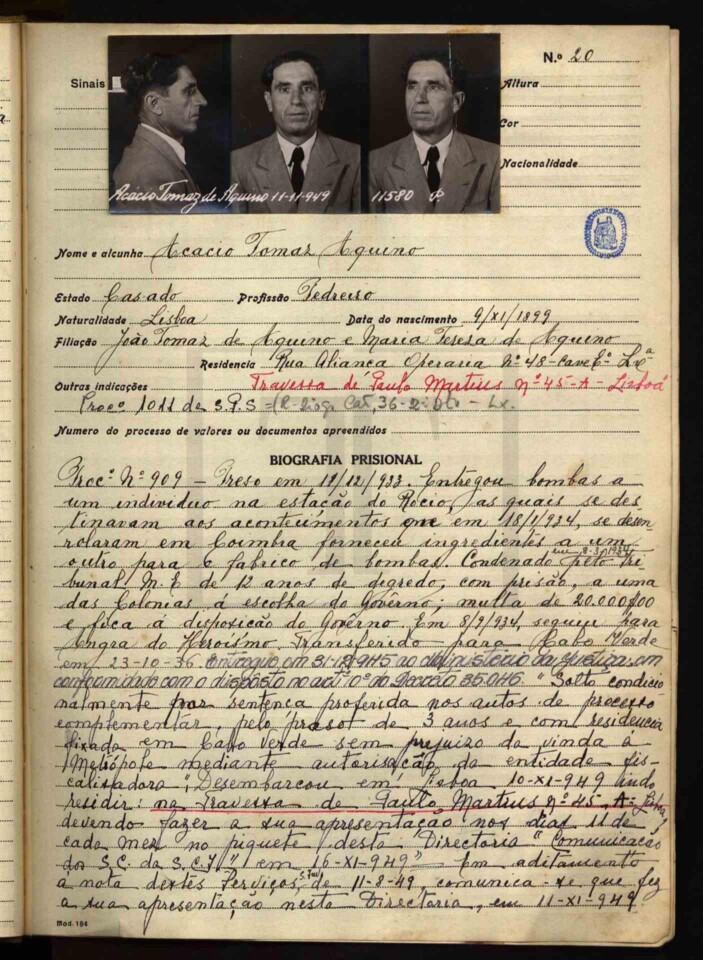 N.º 20
Sinais
Altura
Cor
Nacionalidade
Acácio Tomaz de Aquino 11-11-949 11580 P.
Nome e alcunha Acacio Tomaz Aquino
Estado Casado Profissão Pedreiro
Naturalidade Lisboa Data do nascimento 9/XI/1899
Filiação João Tomaz de Aquino e Maria Tereza de Aquino
Residencia Rua Aliança Operaria Nº 48-Cave Eº Lxª
Outras indicações Travessa de Paulo Martins Nº 45-A-Lisboa
Procº 1011 de S.P.S = (R. Diogo Cão, 36 - Lx.
Numero do processo de valores ou documentos apreendidos
BIOGRAFIA PRISIONAL
Procº Nº 909 - Preso em /12/933. Entregou bombas a
um individuo na estação do Rócio, as quais se des
tinavam aos acontecimentos que em 18/1/934, se desen-
rolaram em Coimbra forneceu ingredientes a um
outro para o fabrico de bombas. Condenado em 8-3-934 pelo Tri
bunal M.E. de 12 anos de degredo, com prisão, a uma
das Colonias á escolha do Govêrno; multa de 20.000$00
e fica á disposição do Governo. Em 8/9/934, seguiu para
Angra do Heroísmo Transferido para Cabo Verde
em 23-10-36 Entregue em 31-12-945 ao Ministério da Justiça, em
conformidade com o disposto no artº do Decreto 35.046. "Solto condicio
nalmente por sentença proferida nos autos de processo
complementar, pelo prazo de 3 anos e com residencia
fixada em Cabo Verde sem prejuizo da vinda á
Metrópole mediante autorisação da entidade fis-
calisadora". Desembarcou em Lisboa 10-XI-949 indo
residir: na Travessa de Paulo Martins Nº 45-A-Lisboa,
devendo fazer a sua apresentação nos dias 11 de
cada mez no piquete desta Directoria "Comunicação
dos S.C. da S.C.I" em 16-XI-949" - Em aditamento
á nota destes Serviços, de 11-8-49 comunica-se que fez
a sua apresentação nesta Directoria, em 11-XI-949.
Mod. 184